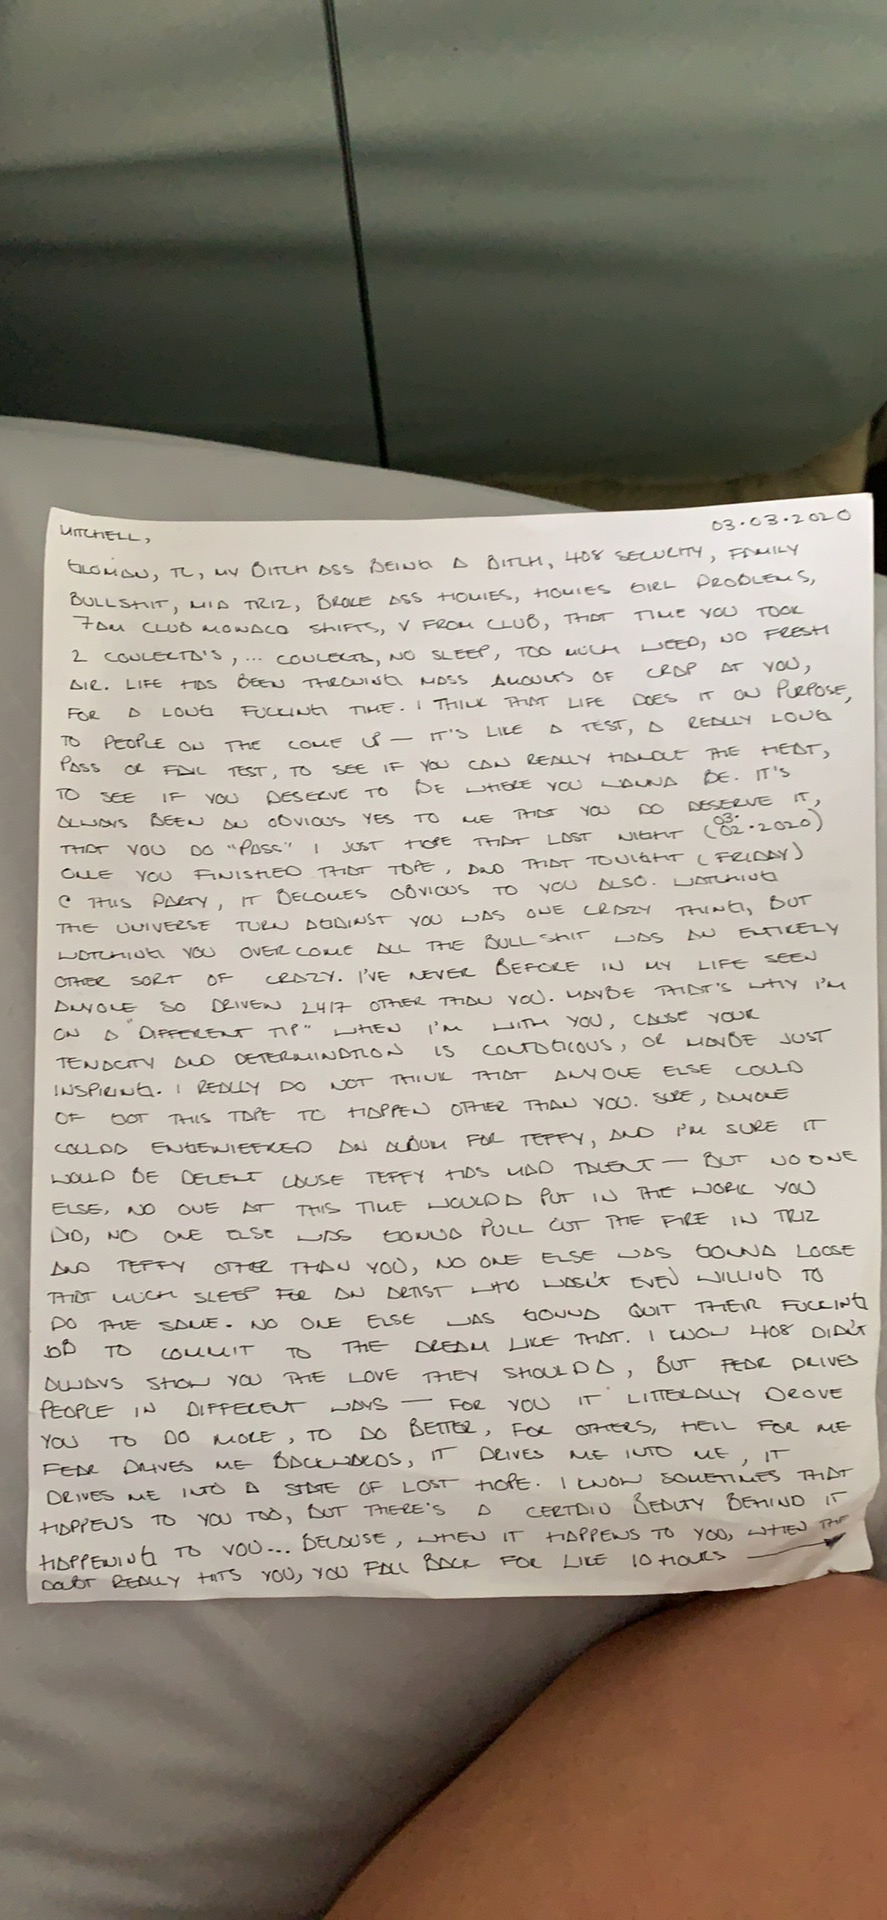 MITCHELL, 03.03.2020
TL, MY BITCH ASS BEING A BITCH, 408 SECURITY, FAMILY
BULLSHIT, MIA TRIZ, BROKE ASS HOMIES, HOMIES GIRL PROBLEMS,
7AM CLUB MONACO SHIFTS, V FROM CLUB, THAT TIME YOU TOOK
2 CONCERTA'S, ... CONCERTA, NO SLEEP, TOO MUCH WEED, NO FRESH
AIR. LIFE HAS BEEN THROWING MASS AMOUNTS OF CRAP AT YOU,
FOR A LONG FUCKING TIME. I THINK THAT LIFE DOES IT ON PURPOSE,
TO PEOPLE ON THE COME UP — IT'S LIKE A TEST, A REALLY LONG
PASS OR FAIL TEST, TO SEE IF YOU CAN REALLY HANDLE THE HEAT,
TO SEE IF YOU DESERVE TO BE WHERE YOU WANNA BE. IT'S
ALWAYS BEEN AN OBVIOUS YES TO ME THAT YOU DO DESERVE IT,
THAT YOU DO "PASS" I JUST HOPE THAT LAST NIGHT (03.02.2020)
ONCE YOU FINISHED THAT TAPE, AND THAT TONIGHT (FRIDAY)
@ THIS PARTY, IT BECOMES OBVIOUS TO YOU ALSO. WATCHING
THE UNIVERSE TURN AGAINST YOU WAS ONE CRAZY THING, BUT
WATCHING YOU OVERCOME ALL THE BULLSHIT WAS AN ENTIRELY
OTHER SORT OF CRAZY. I'VE NEVER BEFORE IN MY LIFE SEEN
ANYONE SO DRIVEN 24/7 OTHER THAN YOU. MAYBE THAT'S WHY I'M
ON A "DIFFERENT TIP" WHEN I'M WITH YOU, CAUSE YOUR
TENACITY AND DETERMINATION IS CONTAGIOUS, OR MAYBE JUST
INSPIRING. I REALLY DO NOT THINK THAT ANYONE ELSE COULD
OF GOT THIS TAPE TO HAPPEN OTHER THAN YOU. SURE, ANYONE
COULDA ENGENIEERED AN ALBUM FOR TEFFY, AND I'M SURE IT
WOULD BE DECENT CAUSE TEFFY HAS MAD TALENT — BUT NO ONE
ELSE, NO ONE AT THIS TIME WOULDA PUT IN THE WORK YOU
DID, NO ONE ELSE WAS GONNA PULL OUT THE FIRE IN TRIZ
AND TEFFY OTHER THAN YOU, NO ONE ELSE WAS GONNA LOOSE
THAT MUCH SLEEP FOR AN ARTIST WHO WASN'T EVEN WILLING TO
DO THE SAME. NO ONE ELSE WAS GONNA QUIT THEIR FUCKING
JOB TO COMMIT TO THE DREAM LIKE THAT. I KNOW 408 DIDN'T
ALWAYS SHOW YOU THE LOVE THEY SHOULDA, BUT FEAR DRIVES
PEOPLE IN DIFFERENT WAYS — FOR YOU IT LITTERALLY DROVE
YOU TO DO MORE, TO DO BETTER, FOR OTHERS, HELL FOR ME
FEAR DRIVES ME BACKWARDS, IT DRIVES ME INTO ME, IT
DRIVES ME INTO A STATE OF LOST HOPE. I KNOW SOMETIMES THAT
HAPPENS TO YOU TOO, BUT THERE'S A CERTAIN BEAUTY BEHIND IT
HAPPENING TO YOU... BECAUSE, WHEN IT HAPPENS TO YOU, WHEN THE
DOUBT REALLY HITS YOU, YOU FALL BACK FOR LIKE 10 HOURS